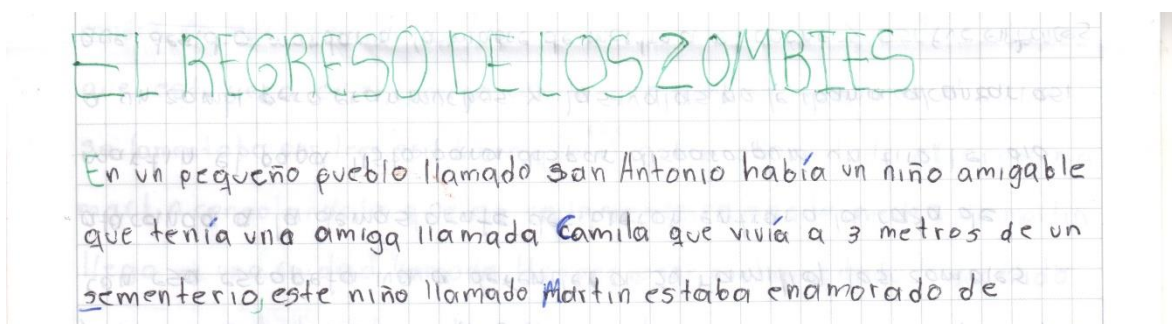 EL REGRESO DE LOS ZOMBIES
En un pequeño pueblo llamado San Antonio había un niño amigable
que tenía una amiga llamada Camila que vivía a 3 metros de un
sementerio, este niño llamado Martin estaba enamorado de